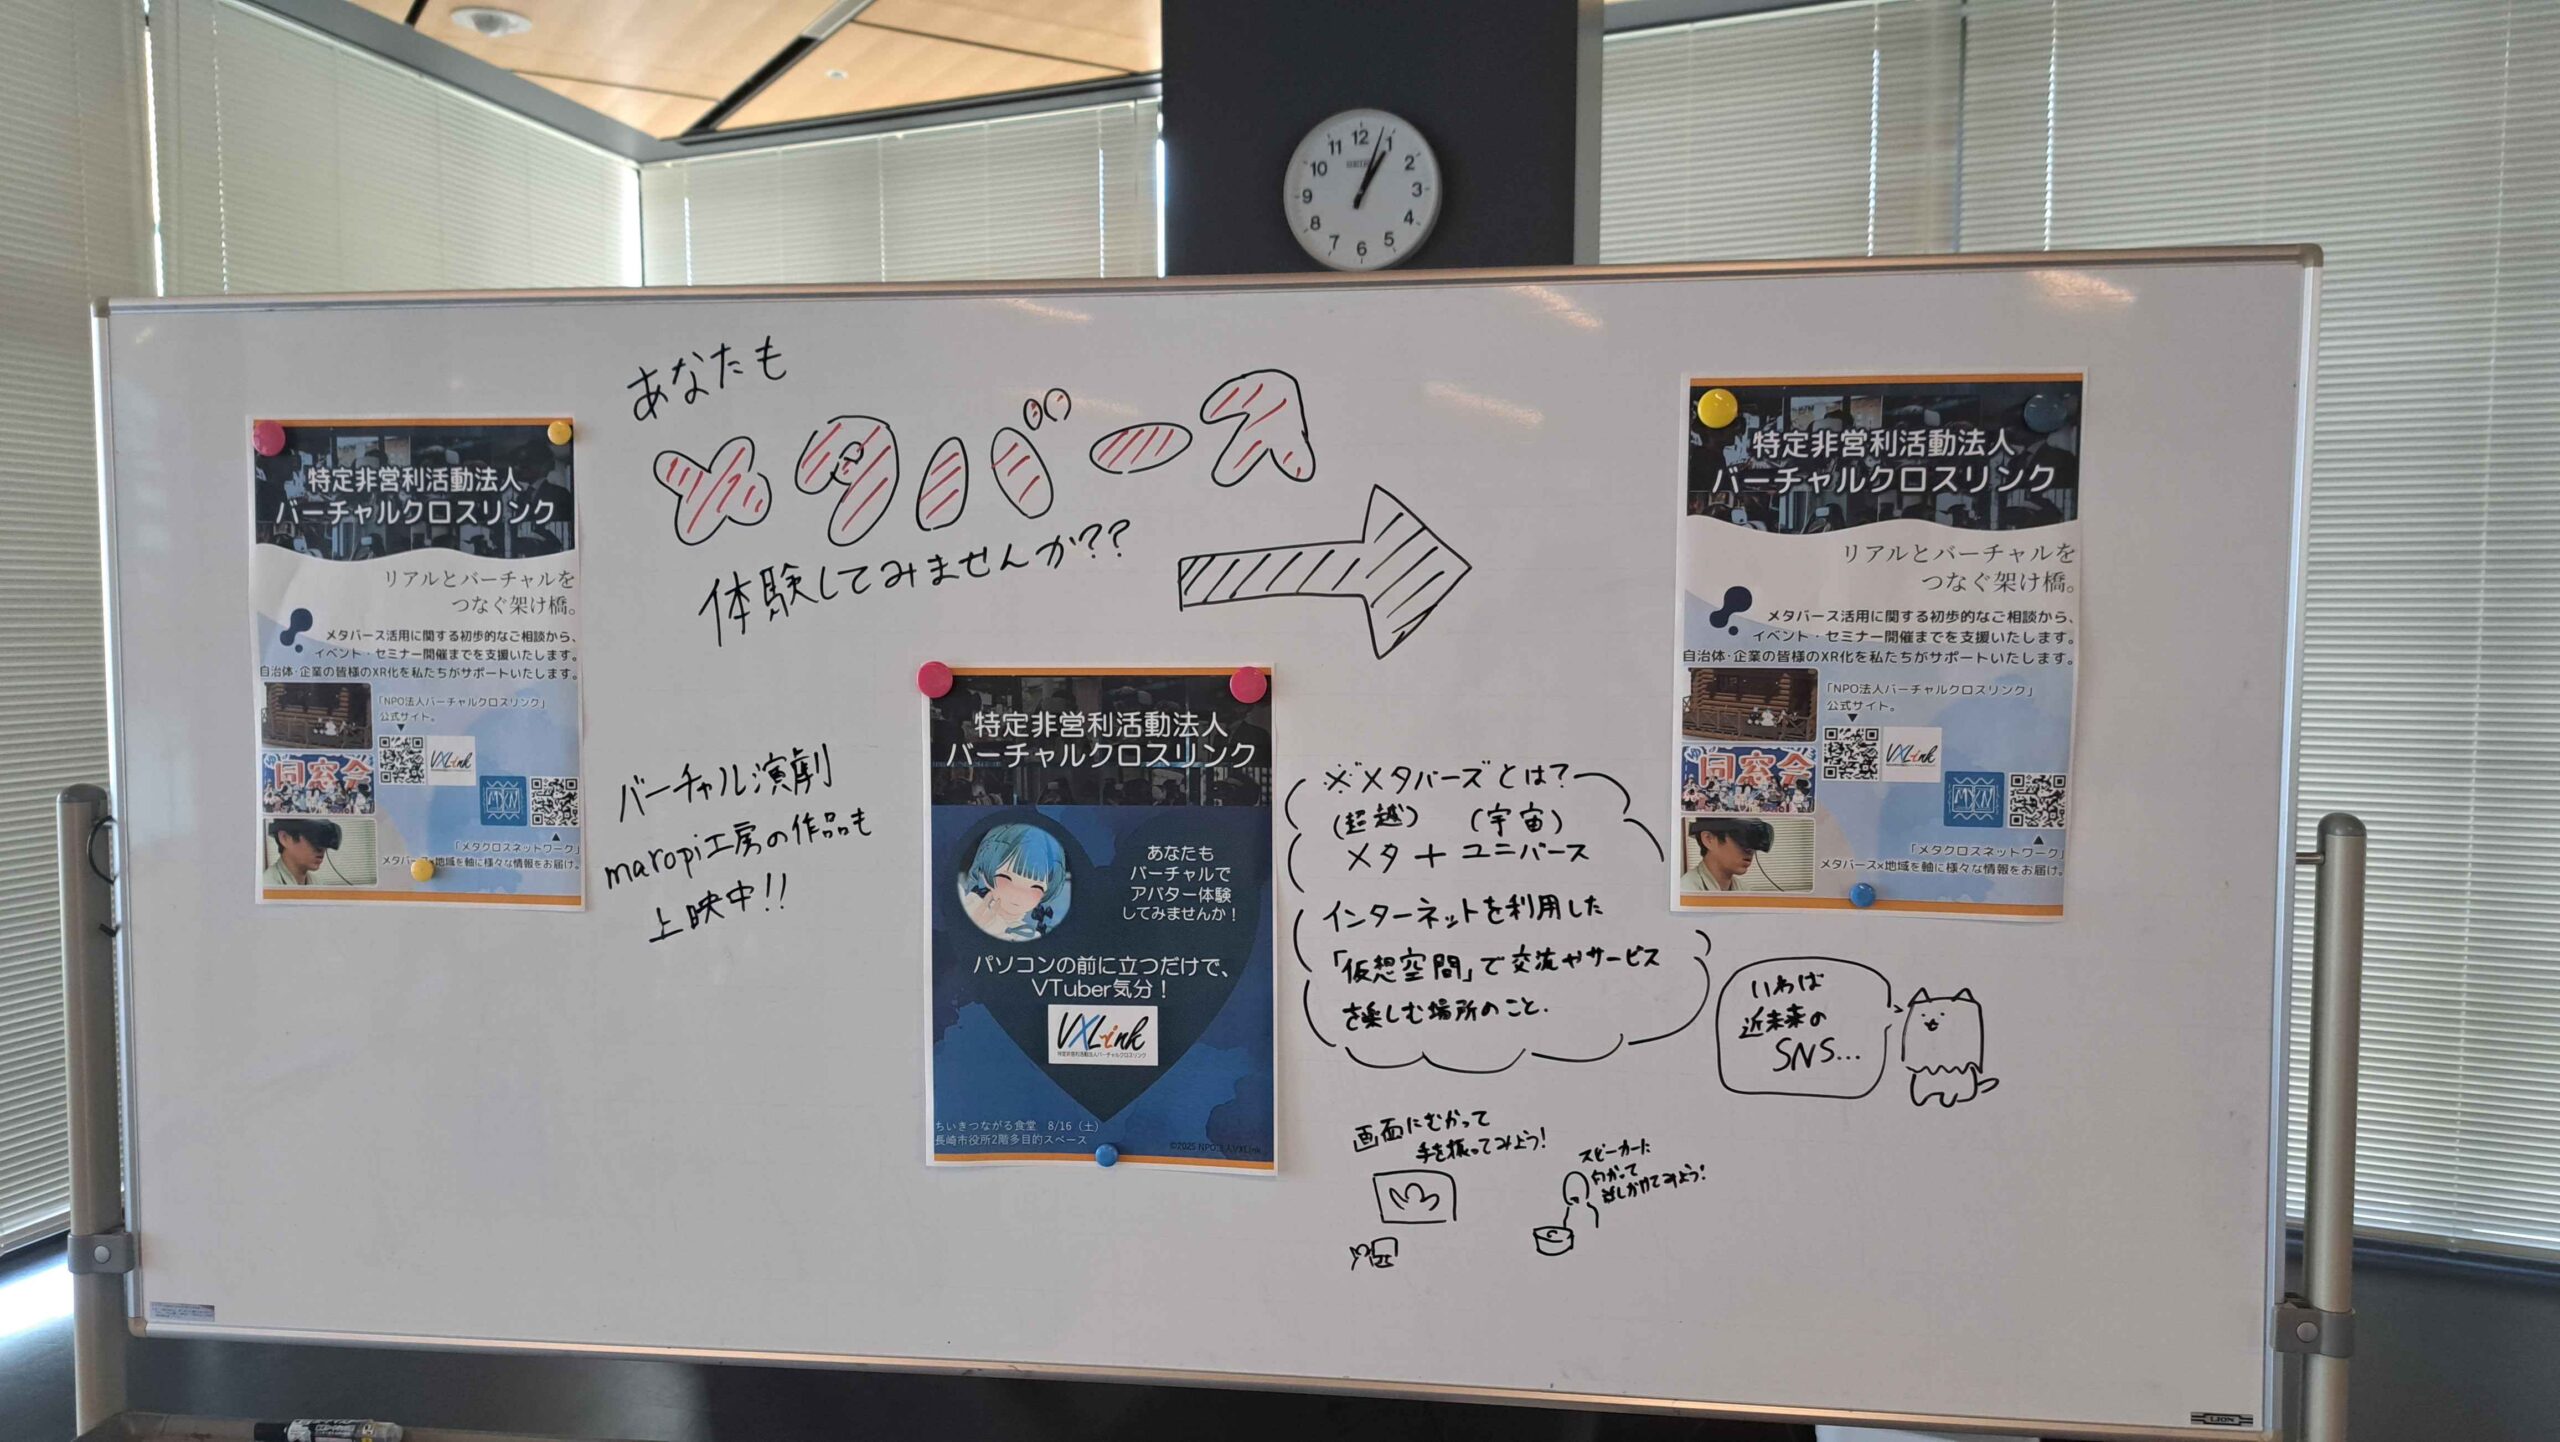 12
1
2
3
4
5
6
7
8
9
10
11
あなたも
メタバース
体験してみませんか??
特定非営利活動法人
バーチャルクロスリンク
リアルとバーチャルを
つなぐ架け橋。
メタバース活用に関する初歩的なご相談から、
イベント・セミナー開催までを支援いたします。
自治体・企業の皆様のXR化を私たちがサポートいたします。
「NPO法人バーチャルクロスリンク」
公式サイト。
▼
VXLink
同窓会
MXN
▲
「メタクロスネットワーク」
メタバース×地域を軸に様々な情報をお届け。
バーチャル演劇
maropi工房の作品も
上映中!!
特定非営利活動法人
バーチャルクロスリンク
あなたも
バーチャルで
アバター体験
してみませんか！
パソコンの前に立つだけで、
VTuber気分！
VXLink
特定非営利活動法人バーチャルクロスリンク
ちいきつながる食堂 8/16（土）
長崎市役所2階多目的スペース
©2025 NPO法人VXLink
※メタバーズとは?
(超越) (宇宙)
メタ + ユニバース
インターネットを利用した
「仮想空間」で交流やサービス
を楽しむ場所のこと.
いわば
近未来の
SNS...
画面にむかって
手を振ってみよう!
スピーカーに
向かって
話しかけてみよう!
特定非営利活動法人
バーチャルクロスリンク
リアルとバーチャルを
つなぐ架け橋。
メタバース活用に関する初歩的なご相談から、
イベント・セミナー開催までを支援いたします。
自治体・企業の皆様のXR化を私たちがサポートいたします。
「NPO法人バーチャルクロスリンク」
公式サイト。
▼
VXLink
同窓会
MXN
▲
「メタクロスネットワーク」
メタバース×地域を軸に様々な情報をお届け。
LION